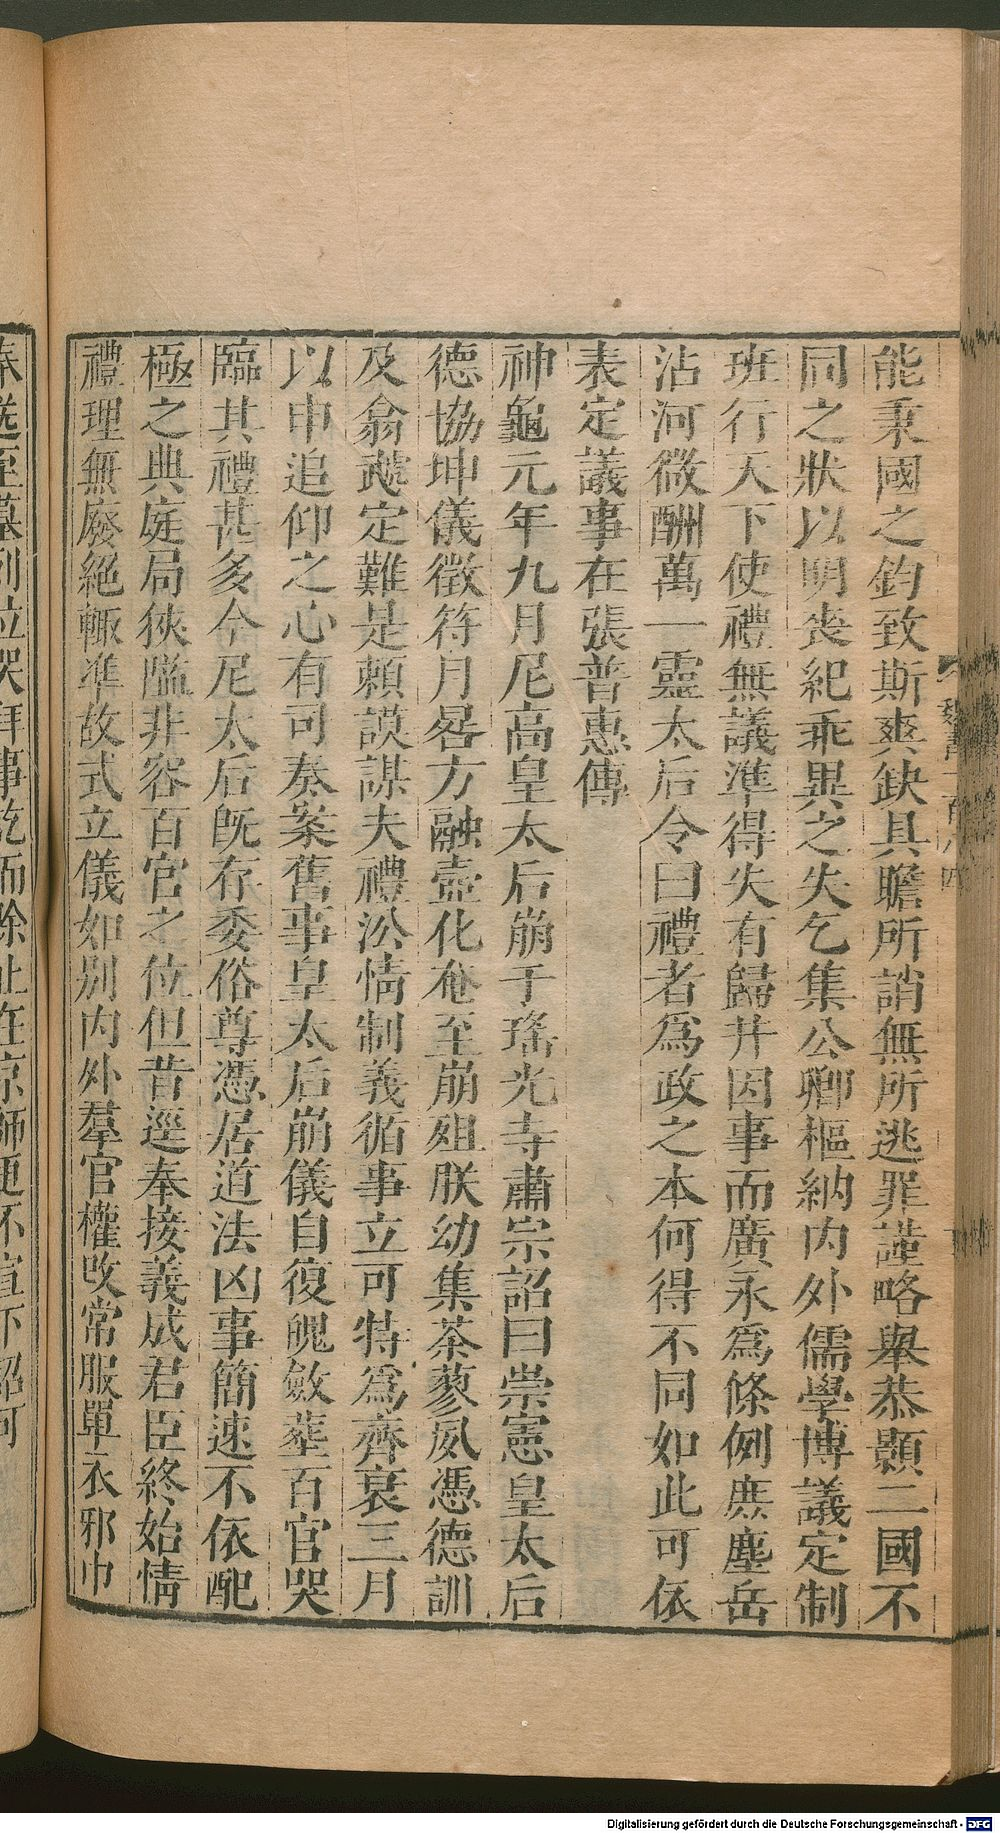 能秉國之鈞致斯爽缺具瞻所誚無所逃罪謹略舉恭顯二國不
同之狀以明喪紀乖異之失乞集公卿樞納内外儒學博議定制
班行天下使禮無議準得失有歸并因事而廣永爲條例庶塵岳
沾河微酬萬一靈太后令曰禮者爲政之本何得不同如此可依
表定議事在張普惠傳
神龜元年九月尼高皇太后崩于瑤光寺肅宗詔曰崇憲皇太后
德協坤儀徵符月晷方融壼化奄至崩殂朕幼集荼蓼夙憑德訓
及翕虣定難是賴謨謀夫禮沿情制義循事立可特爲齊衰三月
以申追仰之心有司奏案舊事皇太后崩儀自復魄斂葬百官哭
臨其禮甚多今尼太后旣存委俗尊憑居道法凶事簡速不依配
極之典庭局狹隘非容百官之位但昔逕奉接義成君臣終始情
禮理無廢絕輒準故式立儀如別内外羣官權改常服單衣邪巾
奉送至墓列位哭拜事訖而除止在京師更不宣下詔可
Digitalisierung gefördert durch die Deutsche Forschungsgemeinschaft - DFG